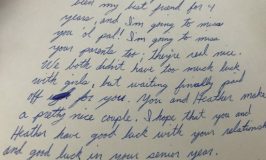 been my best friend for 4
years, and I'm going to miss
you ol pal! I'm going to miss
your parents too, they're real nice.
We both didn't have too much luck
with girls, but waiting finally paid
off for you. You and Heather make
a pretty nice couple. I hope that you and
Heather have good luck with your relationship
and good luck in your senior year.